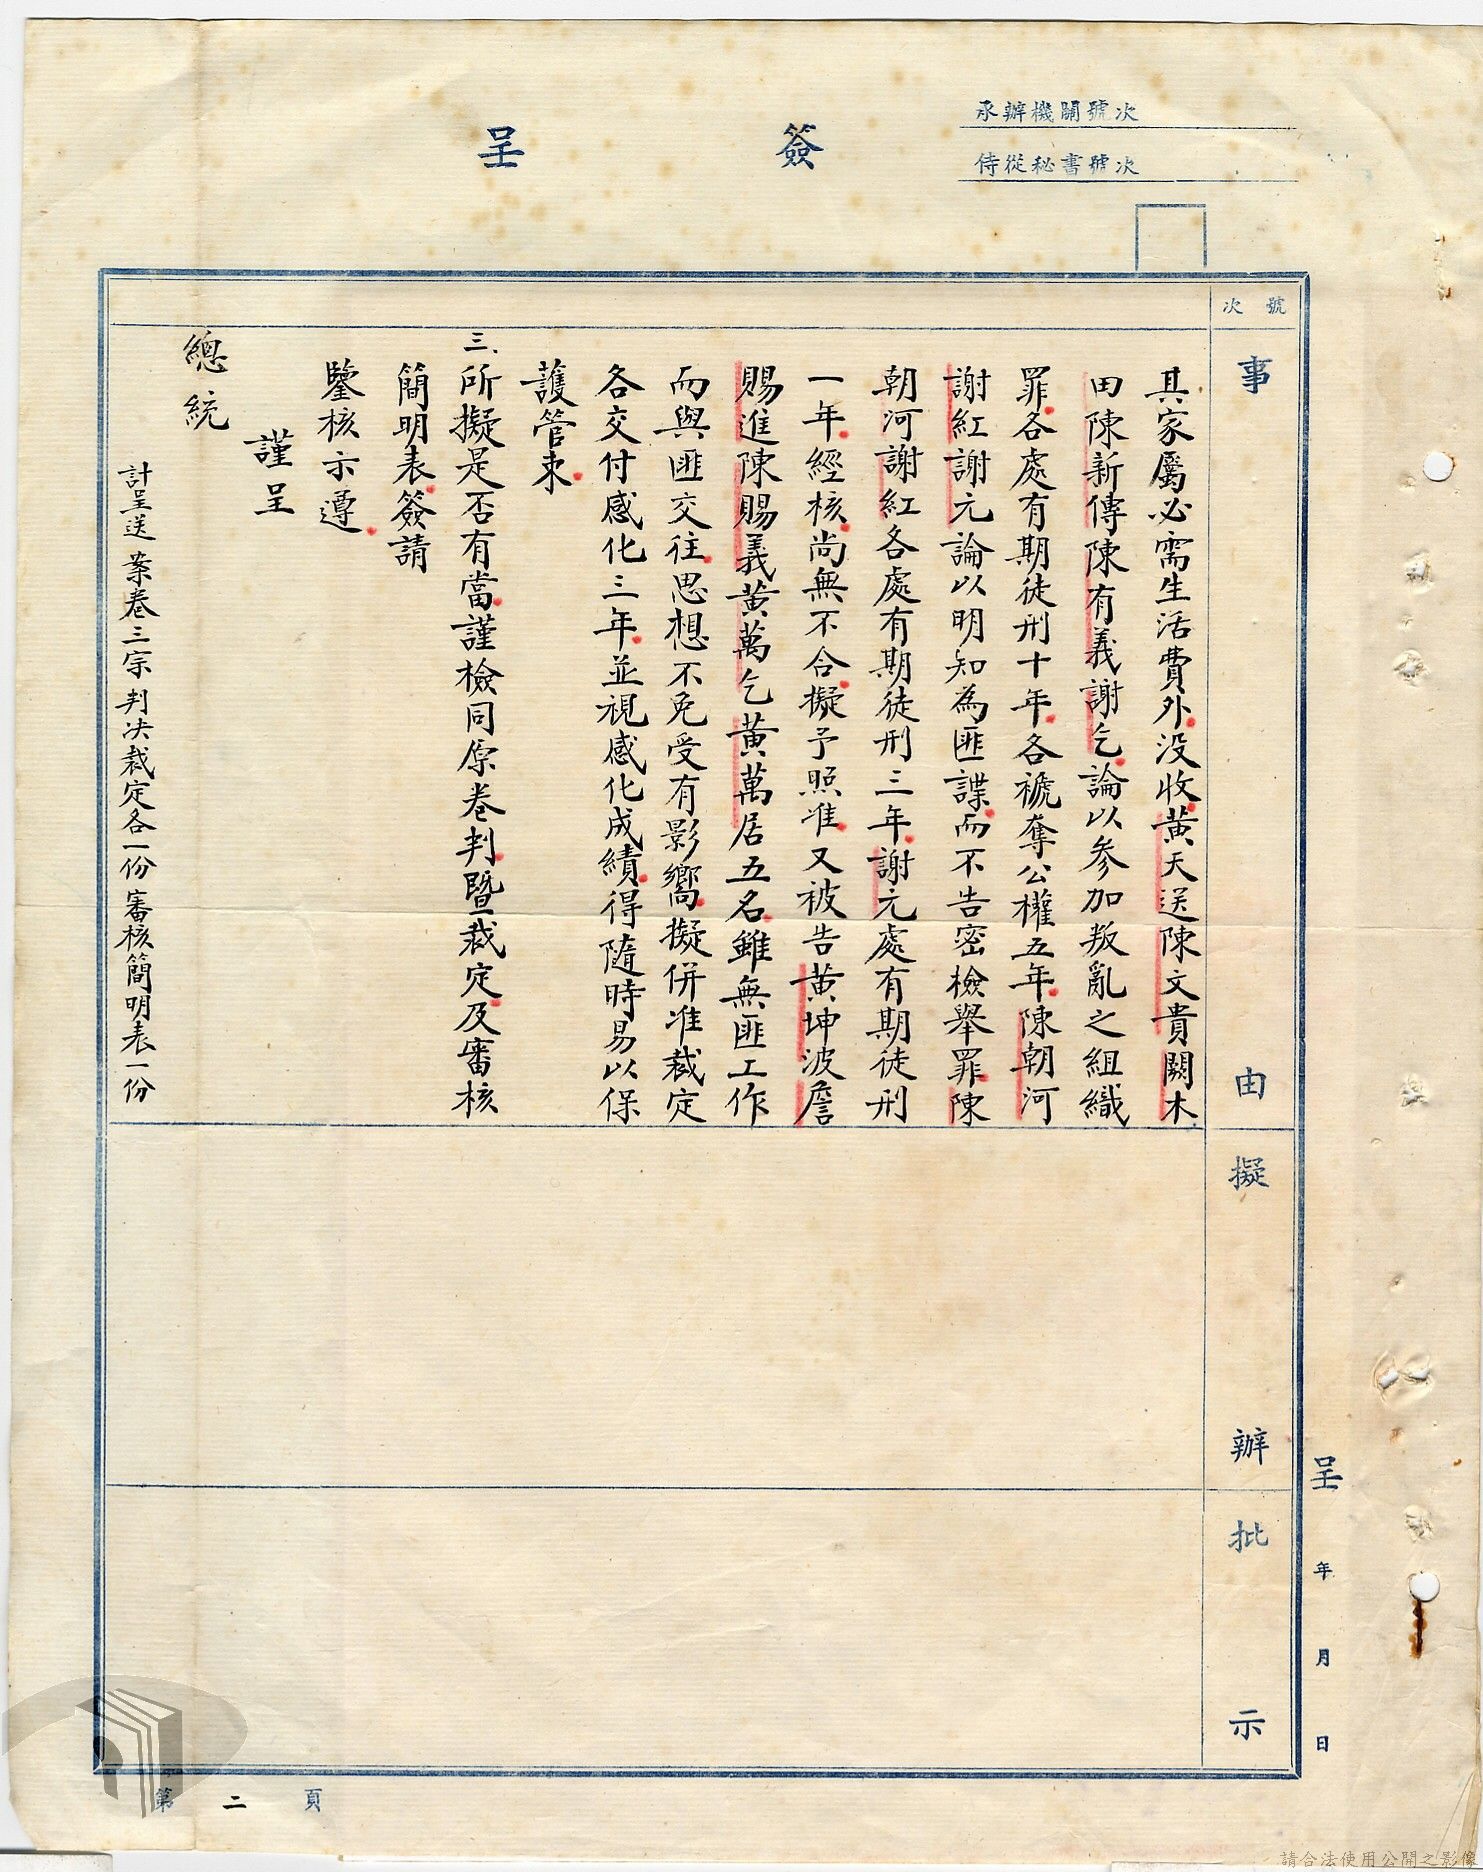 承辦機關號次
侍從秘書號次
簽呈
號次
事由
擬辦
批示
呈 年 月 日
其家屬必需生活費外沒收黃天送陳文貴闕木
田陳新傳陳有義謝乞論以參加叛亂之組織
罪各處有期徒刑十年各褫奪公權五年陳朝河
謝紅謝元論以明知為匪諜而不告密檢舉罪陳
朝河謝紅各處有期徒刑三年謝元處有期徒刑
一年經核尚無不合擬予照准又被告黃坤波詹
賜進陳賜義黃萬乞黃萬居五名雖無匪工作
而與匪交往思想不免受有影嚮擬併准裁定
各交付感化三年並視感化成績得隨時易以保
護管束
三、所擬是否有當謹檢同原卷判暨裁定及審核
簡明表簽請
鑒核示遵
謹呈
總統
計呈送 案卷三宗 判決裁定各一份 審核簡明表一份
第二頁
請合法使用公開之影像